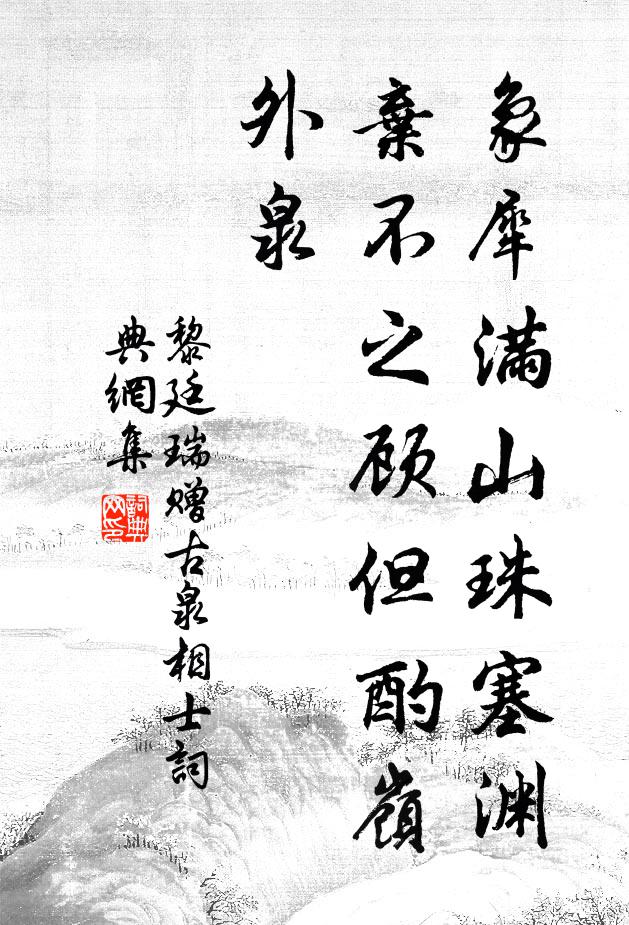 象犀滿山珠塞渊
棄不之顾但酌嶺
外泉
黎廷瑞赠古泉相士詞
典網集
詞典
网印